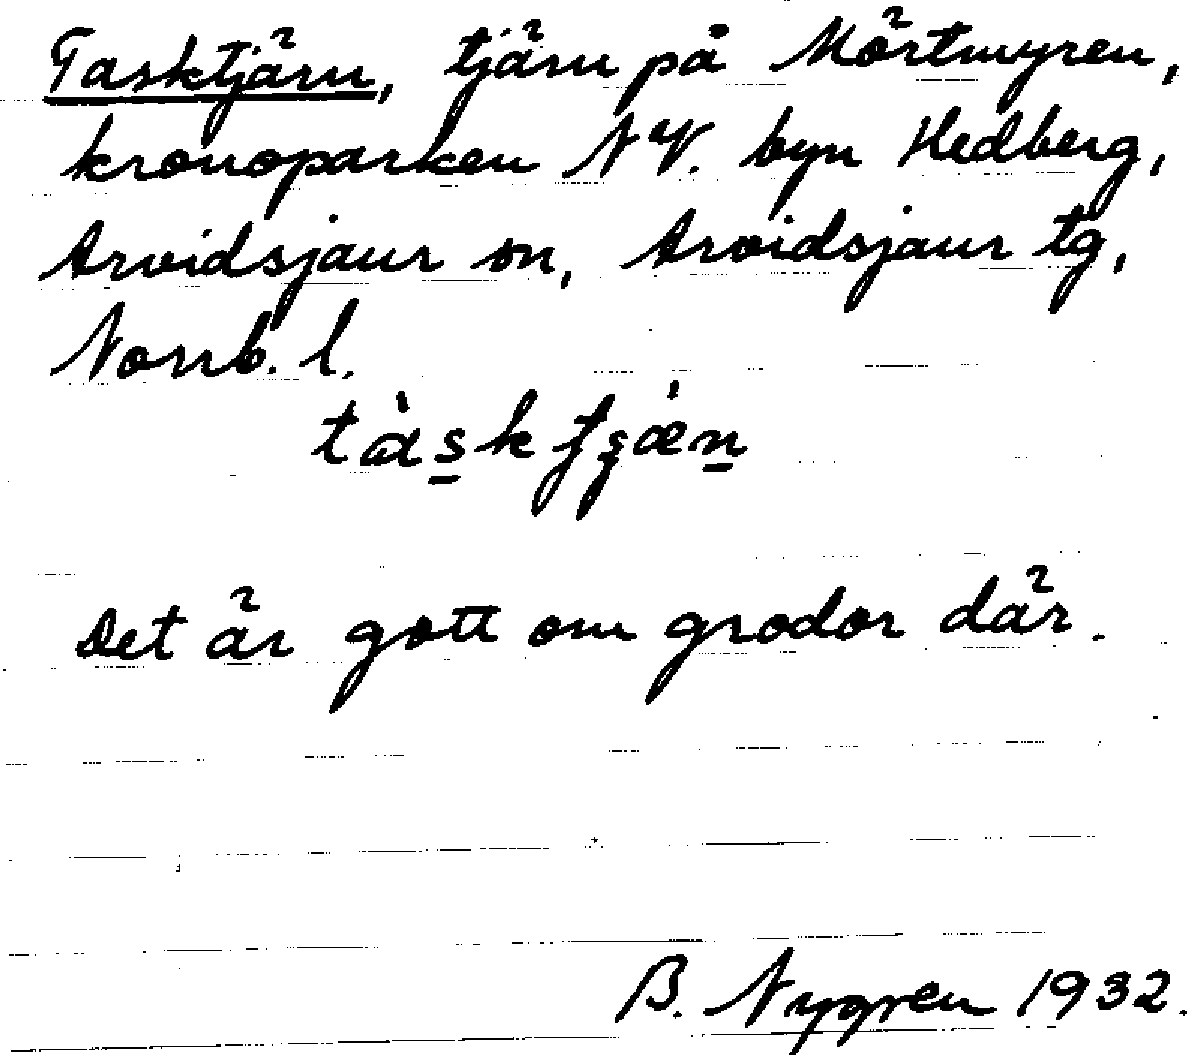 Tasktjärn, tjärn på Mörtmyren,
kronoparken NV. byn Hedberg,
Arvidsjaur sn, Arvidsjaur tg,
Norrb. l.
Det är gott om grodor där.
B. Nygren 1932.